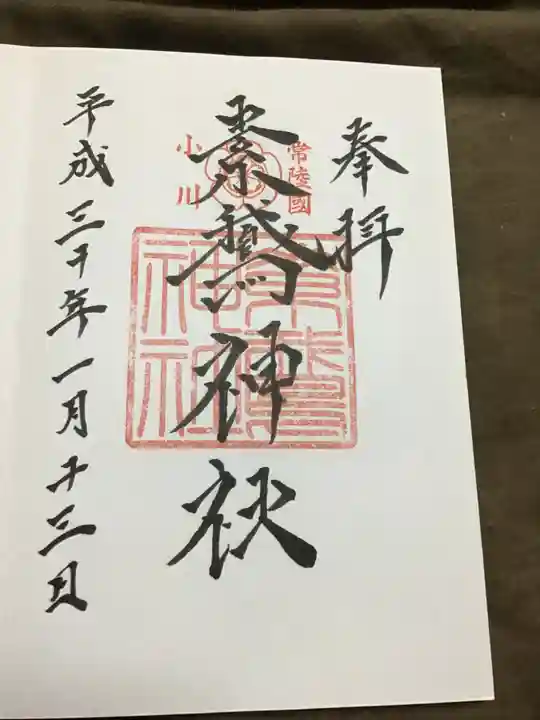 奉拝
常陸國
素鵞神社
小川
素鵞神社
平成三十年一月十三日